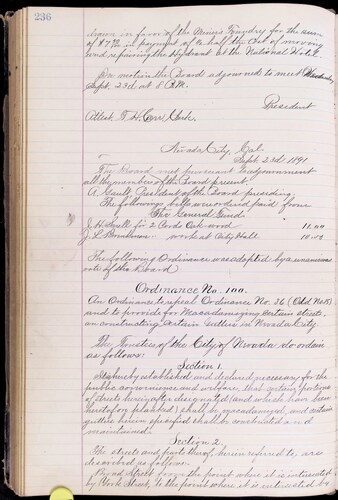 236
drawn in favor of the Miners Foundry for the sum
of $7.50 in payment of one half the cost of moving
and repairing the Hydrant at the National Hotel.
On motion the Board adjourned to meet Wednesday
Sept. 23d at 8 P.M.
President
Attest T. H. Carr Clerk
Nevada City, Cal.
Sept 23d 1891
The Board met pursuant to adjournment
all the members of the Board present,
A. Gault, President of the Board presiding.
The following bills were ordered paid from
The General Fund
J. H. Snell for 2 Cords Oak-wood 11.00
J. L. work at City Hall 10.00
The following Ordinance was adopted by a unanimous
vote of the Board
Ordinance No. 100.
An Ordinance to repeal Ordinance No. 36 (Old No 18)
and to provide for Macadamizing certain streets,
an constructing certain gutters in Nevada City
The Trustees of the City of Nevada do ordain
as follows:
Section 1.
It is hereby established and declared necessary for the
public convenience and welfare, that certain portions
of streets hereinafter designated (and which have been
heretofore planked) shall be macadamized, and certain
gutters herein specified shall be constructed and
maintained.
Section 2.
The streets and parts thereof herein referred to, are
described as follows:
Broad Street from the point where it is intersected
by York Street, to the point where it is intersected by